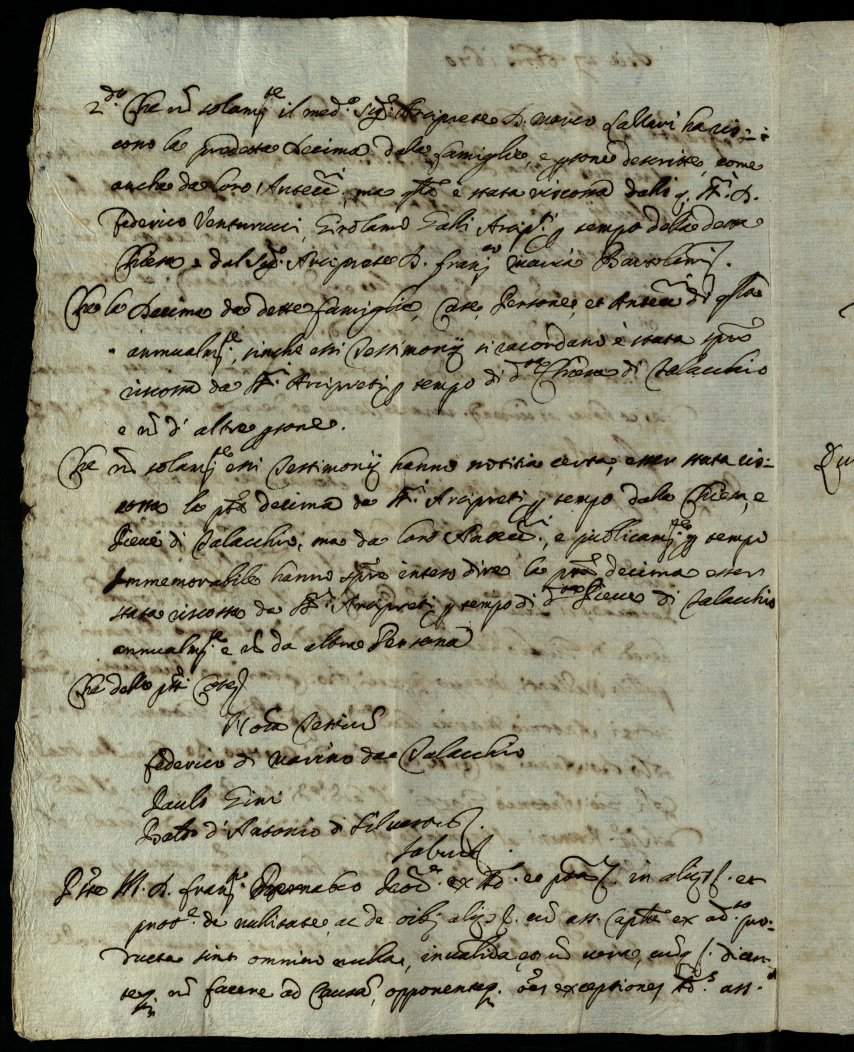 2do. Che nō solamte il medo. Sigr. Arciprete D. Marco Callavi ha ris-
cono la predetta Decima dalle famiglie, e psone descritte, come
anche da loro Antecri, ma qta è stata riscossa dalli q. Sri. D.
Federico Venturucci, Girolamo Galli Arcipti. p tempo della detta
Chiesa e dal Sigr. Arciprete D. Franco Maria Bartolini.
Che la Decima da dette famiglie, Case, Persone, et Antecri di qlla
annualmte, sinche essi Testimonij si racordano è stata spre
riscossa da Sri. Arcipreti p tempo di da. Chiesa di Talacchio
e nō d' altre psone.
Che nō solamte essi Testimonij hanno notitia certa, esser stata ris-
cossa la pta decima da Sri. Arcipreti p tempo della Chiesa, e
Pieve di Talacchio, ma da loro Antecri., e publicamte p tempo
Immemorabile hanno spre inteso dire la pta decima esser
stata riscossa da Sri. Arcipreti p tempo di da. Pieve di Talacchio
annualmte e nō da altra Persona
Che delle pte Cose
Noīa Testiū
Federico di Marino da Talacchio
Paulo Gini
Batta d'Antonio di Silvestro
D. Franco ex in alijs et
de nullitate, ac de oībus alijs cū art. ex ado. pro-
ducta sint omnino nulla, invalida, et nō vera, dicen-
teq. nō facere ad Causā, opponensq. oēs exceptiones art.